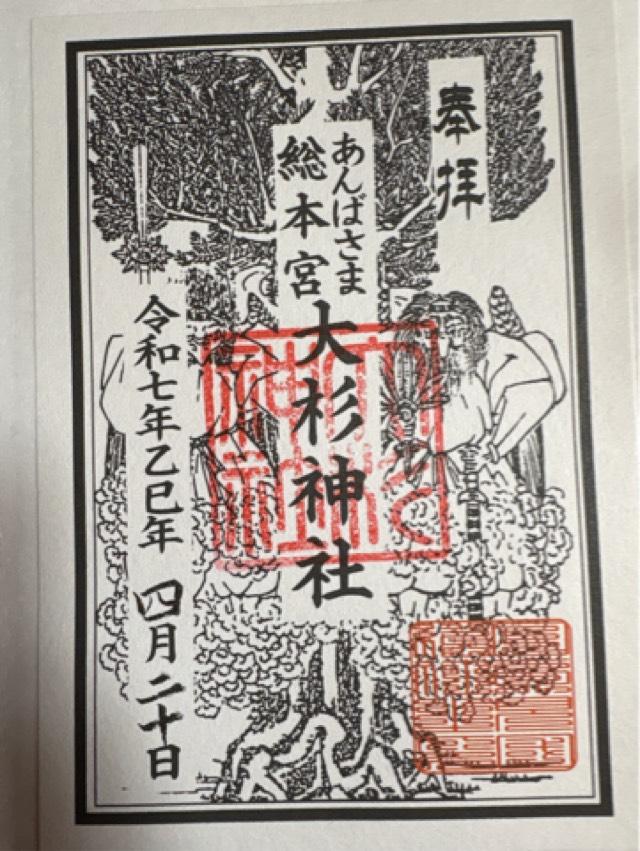 奉拝
あんばさま
総本宮
大杉神社
令和七年乙巳年 四月二十日